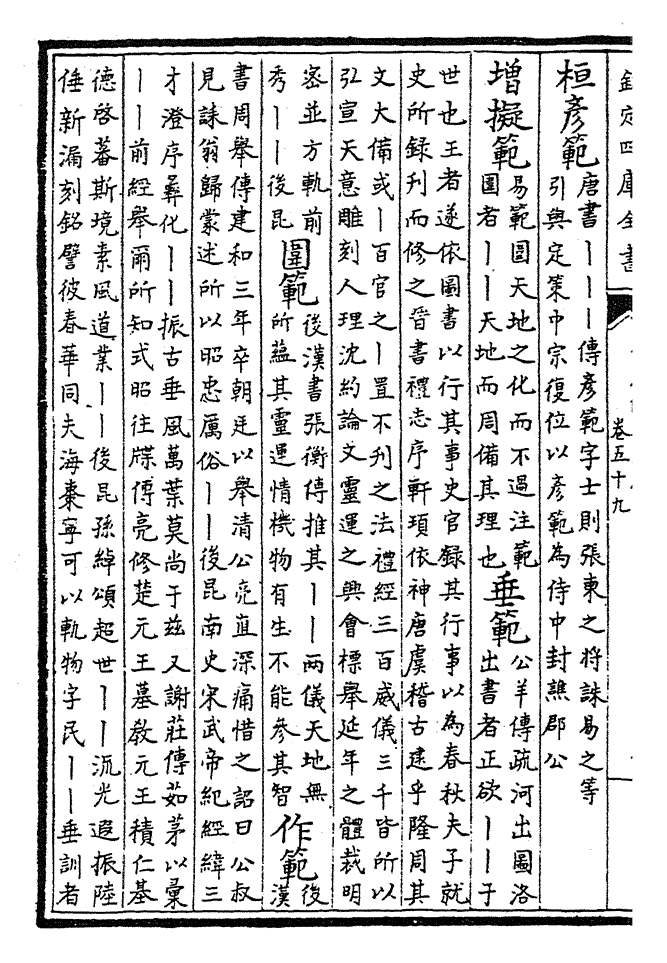 欽定四庫全書
卷五十九
桓彥範唐書丨丨丨傳彥範字士則張柬之將誅易之等
引與定策中宗復位以彥範為侍中封譙郡公
增擬範易範圍天地之化而不過注範
圍者丨丨天地而周備其理也
垂範公羊傳疏河出圖洛
出書者正欲丨丨于
世也王者遂依圖書以行其事史官錄其行事以為春秋夫子就
史所錄刋而修之晉書禮志序軒頊依神唐虞稽古逮乎隆周其
文大備或丨百官之丨置不刋之法禮經三百威儀三千皆所以
弘宣天意雕刻人理沈約論文靈運之興會標舉延年之體裁明
宻並方軌前
秀丨丨後昆
圍範後漢書張衡傳推其丨丨兩儀天地無
所蘊其靈運情機物有生不能參其智
作範後
漢
書周舉傳建和三年卒朝廷以舉清公亮直深痛惜之詔曰公叔
見誄翁歸蒙述所以昭忠厲俗丨丨後昆南史宋武帝紀經緯三
才澄序彝化丨丨振古垂風萬葉莫尚于兹又謝莊傳茹茅以彙
丨丨前經舉爾所知式昭往牒傅亮修楚元王墓教元王積仁基
德啓蕃斯境素風道業丨丨後昆孫綽頌超世丨丨流光遐振陸
倕新漏刻銘譬彼春華同夫海棗寧可以軌物字民丨丨垂訓者